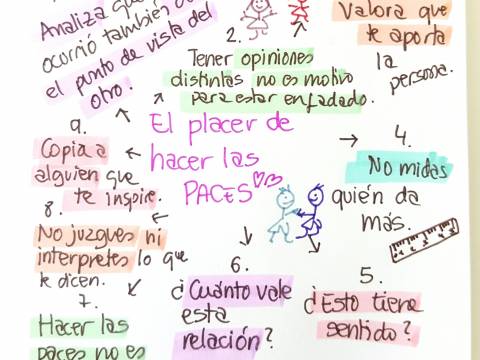 Analiza que
ocurrió también
el punto de vista del
otro.
2.
Tener opiniones
distintas no es motivo
para estar enfadado.
Valora que
te aporta
la
persona.
El placer de
hacer las
PACES
4.
No midas
quién da
más.
5.
¿Esto tiene
sentido?
6.
¿Cuánto vale
esta
relación?
7.
Hacer las
paces no es
8.
No juzgues ni
interpretes lo que
te dicen.
9.
Copia a
alguien que
te inspire.